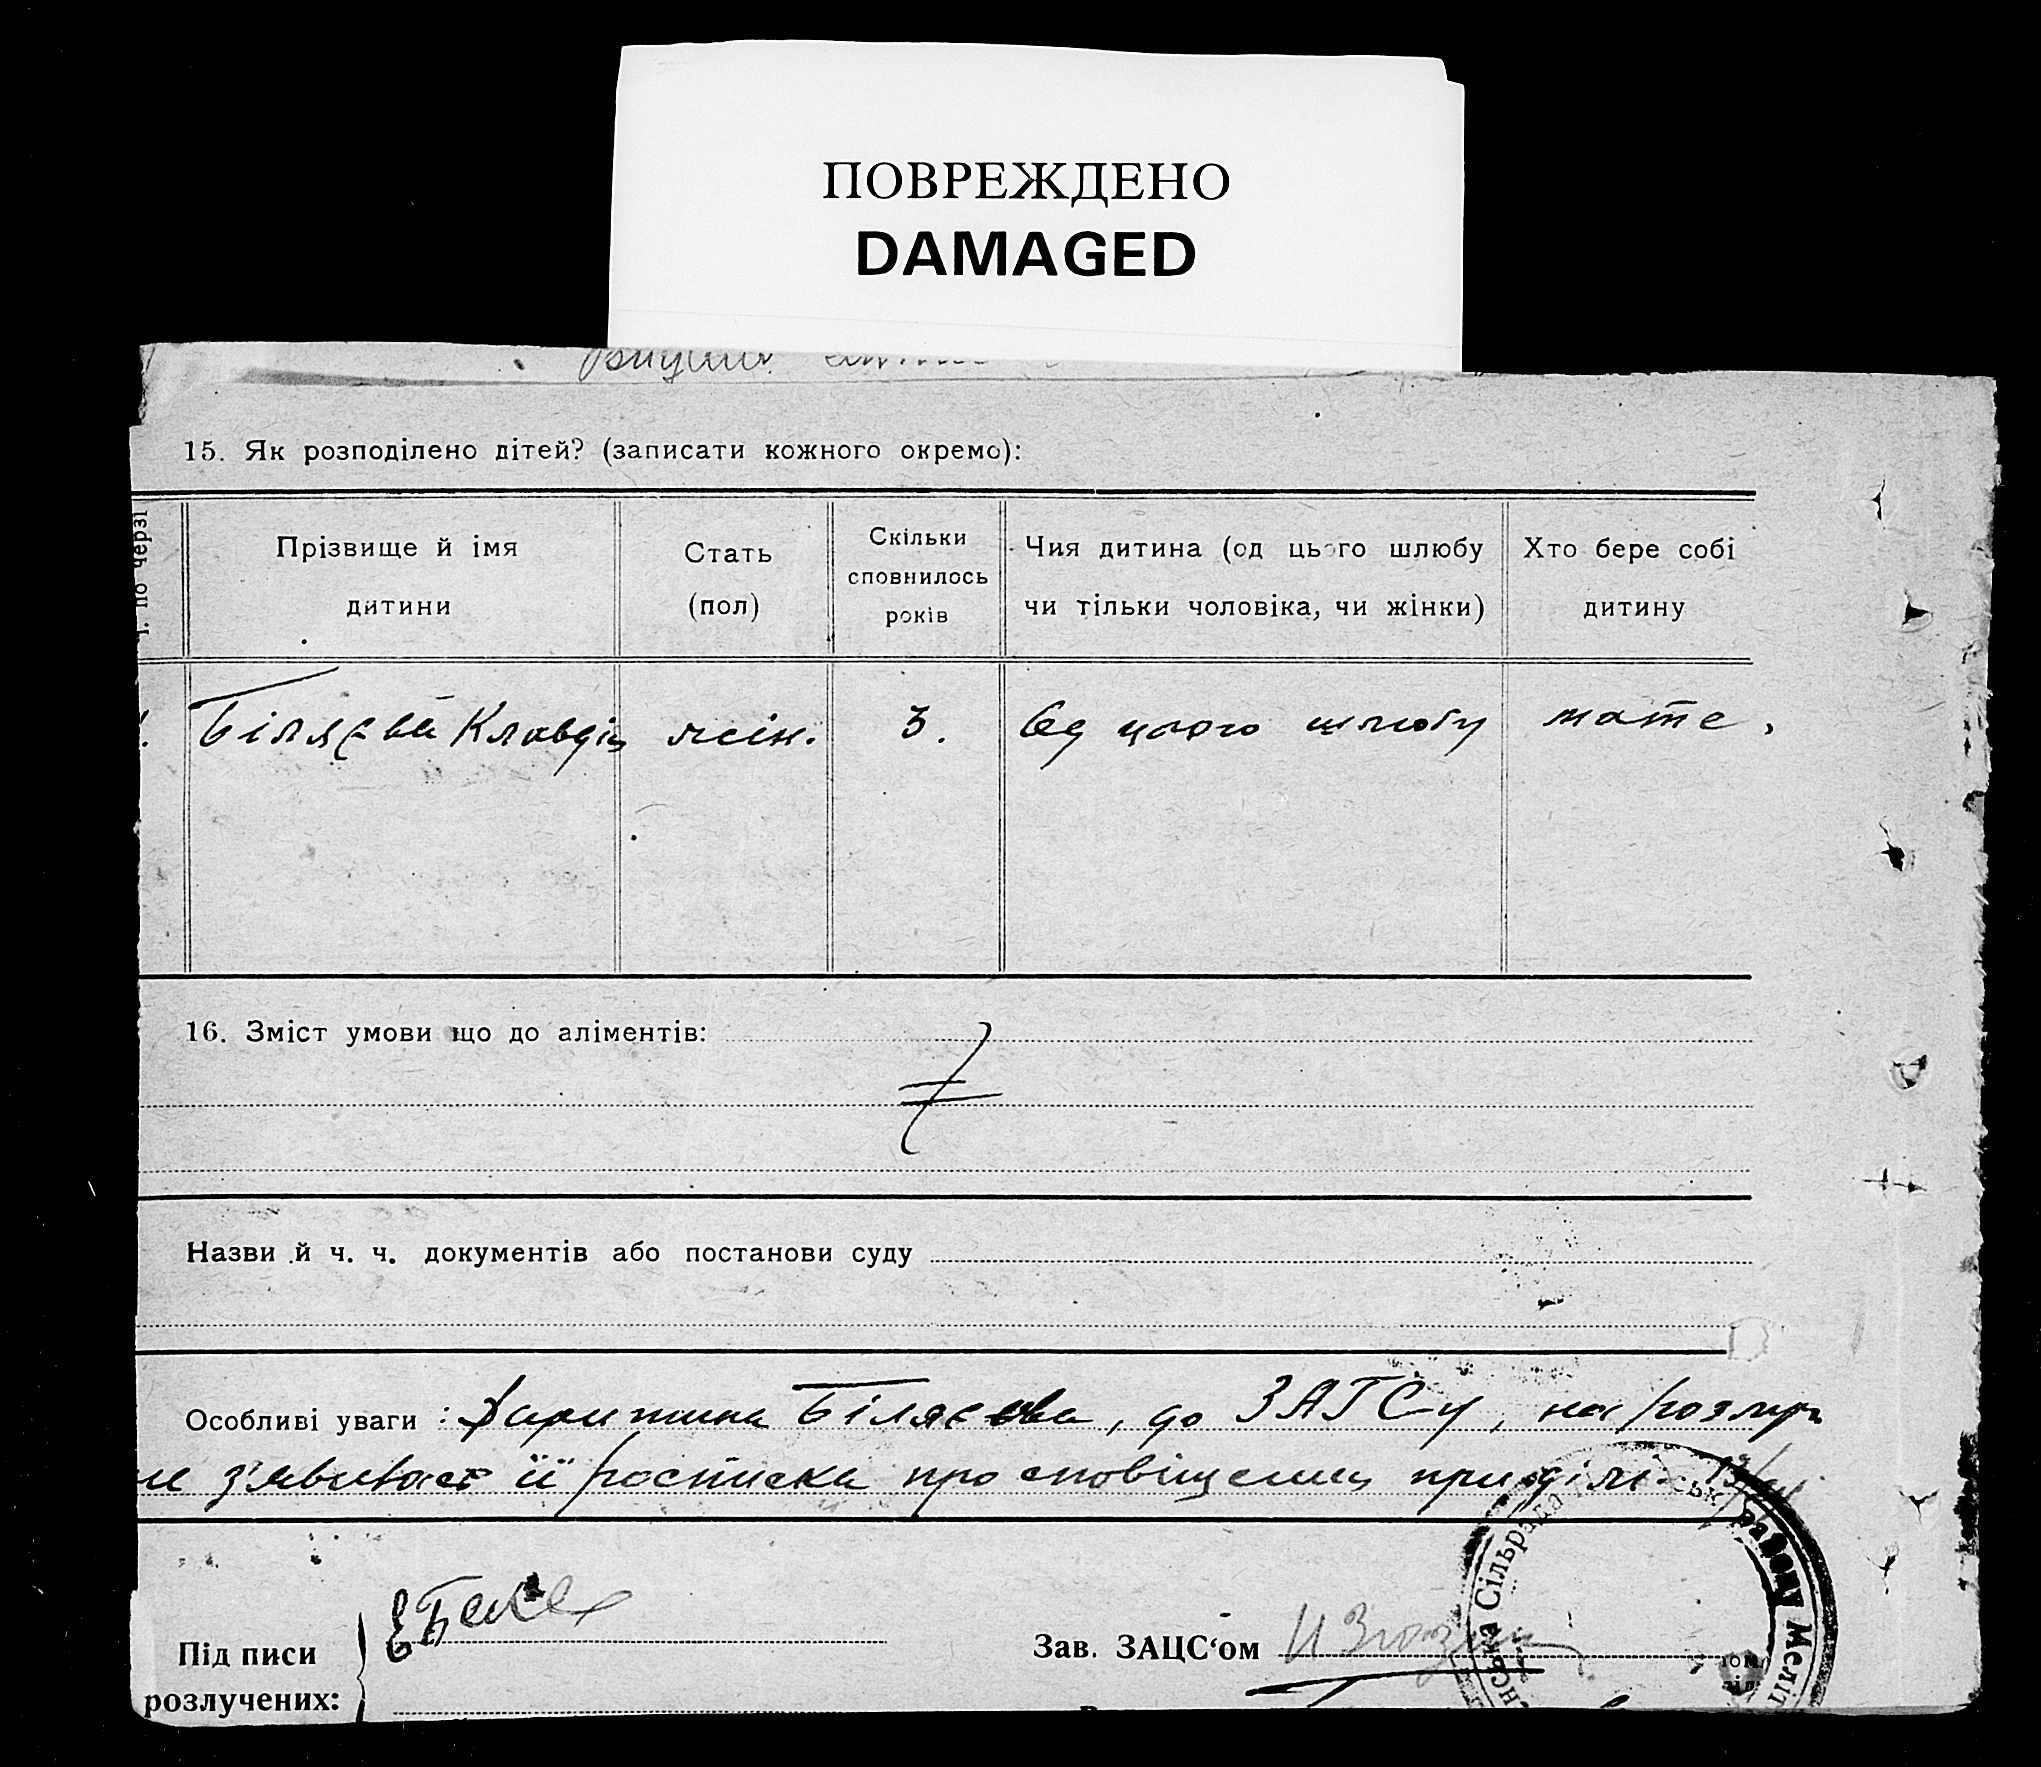 ПОВРЕЖДЕНО
DAMAGED
15. Як розподілено дітей? (записати кожного окремо):
по черзі
Прізвище й імя дитини
Стать (пол)
Скільки сповнилось років
Чия дитина (од цього шлюбу чи тільки чоловіка, чи жінки)
Хто бере собі дитину
Біляєва Клавдія жін. 3. Од цього шлюбу мате
16. Зміст умови що до аліментів:
Назви й ч. ч. документів або постанови суду
Особливі уваги: Біляєва, до ЗАГСу, на
її росписка про сповіщення при ділі
Під писи
розлучених:
Зав. ЗАЦС‘ом
Сільрада
району Меліт